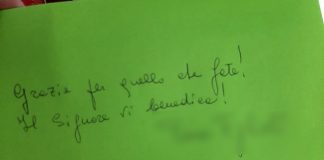 Grazie per quello che fate!
Il Signore vi benedica!